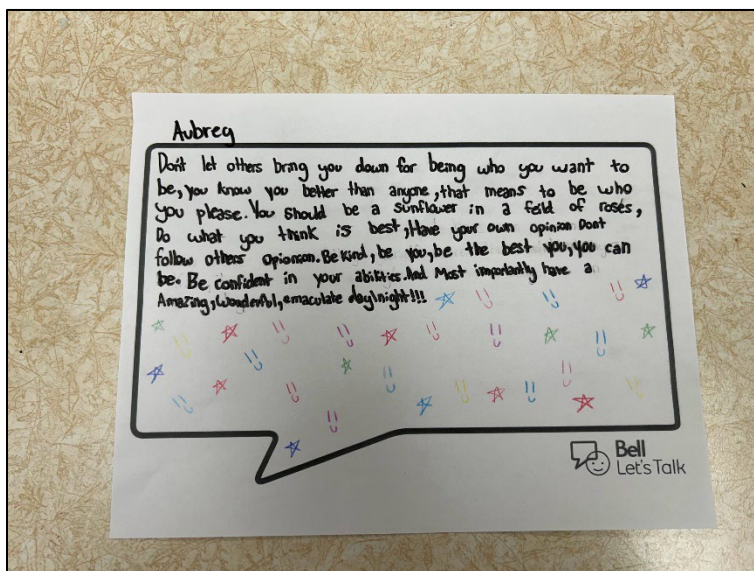 Aubrey
Don't let others bring you down for being who you want to
be, you know you better than anyone, that means to be who
you please. You should be a sunflower in a feild of roses,
Do what you think is best, Have your own opinion Dont
follow others Opionson. Be kind, be you, be the best you, you can
be. Be confident in your abilities. And Most importantly have a
Amazing, Wonderful, emaculate day\night!!!
Bell
Let's Talk